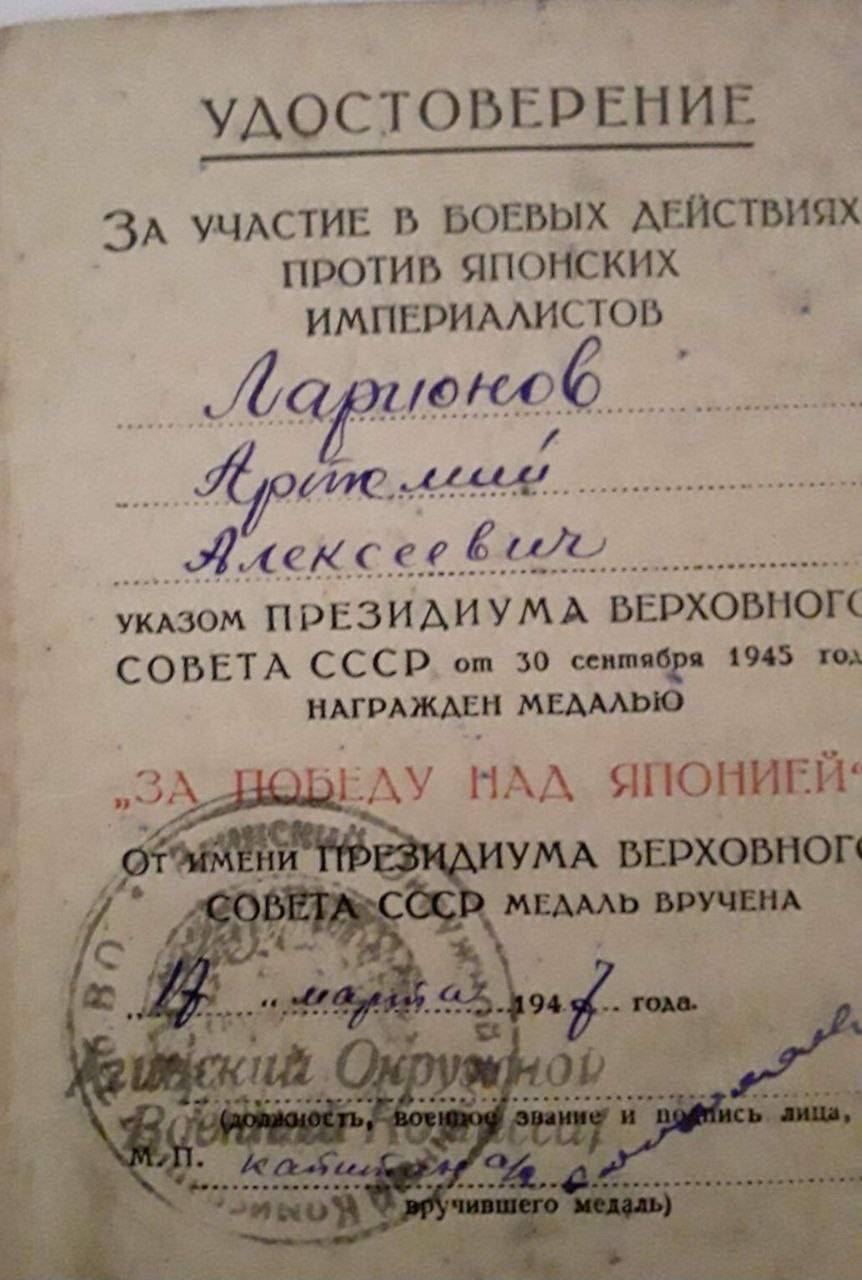 УДОСТОВЕРЕНИЕ
ЗА УЧАСТИЕ В БОЕВЫХ ДЕЙСТВИЯХ
ПРОТИВ ЯПОНСКИХ
ИМПЕРИАЛИСТОВ
Ларионов
Артемий
Алексеевич
УКАЗОМ ПРЕЗИДИУМА ВЕРХОВНОГО
СОВЕТА СССР от 30 сентября 1945 год
НАГРАЖДЕН МЕДАЛЬЮ
„ЗА ПОБЕДУ НАД ЯПОНИЕЙ“
ОТ ИМЕНИ ПРЕЗИДИУМА ВЕРХОВНОГО
СОВЕТА СССР МЕДАЛЬ ВРУЧЕНА
17 „ марта 1947 года.
Агинский Окружной
Военный Комиссар
(должность, военное звание и подпись лица,
М. П. капитан а/с
вручившего медаль)